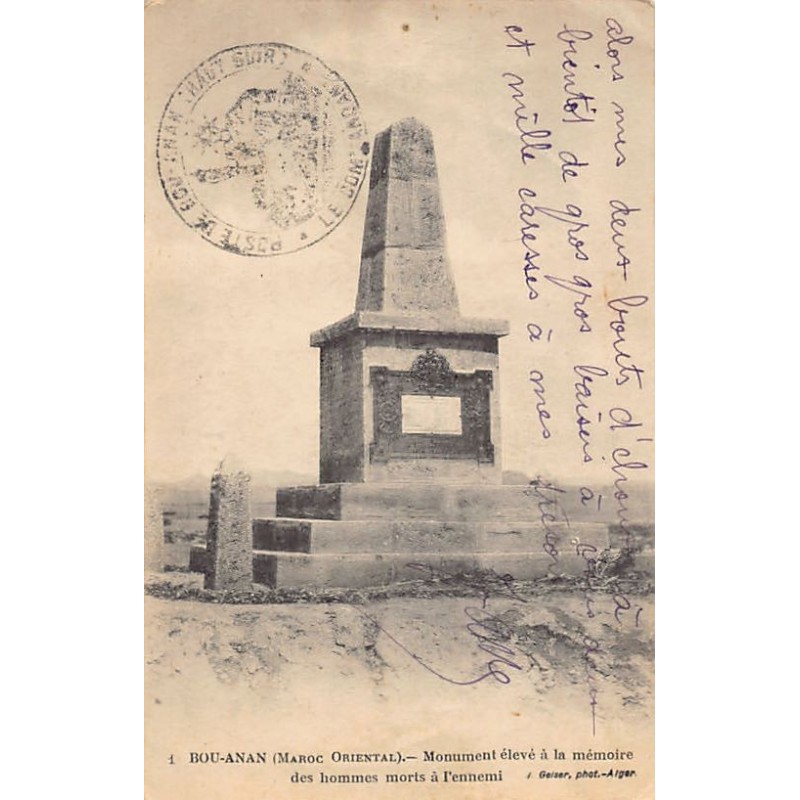 POSTE DE BOU-ANAN (HAUT GUIR)
alors mes deux bouts d'chou à
bientôt de gros gros baisers à
et mille caresses à mes trésors
1 BOU-ANAN (MAROC ORIENTAL).— Monument élevé à la mémoire
des hommes morts à l'ennemi J. Geiser, phot.-Alger.